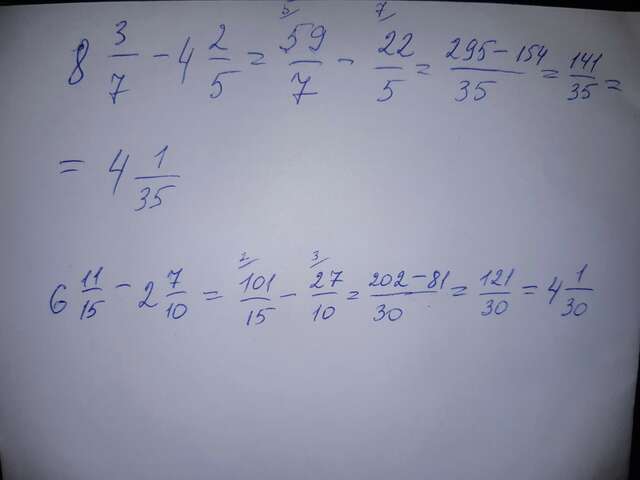 8 3/7 - 4 2/5 = 59/7 ⁵⁄ - 22/5 ⁷⁄ = 295-154/35 = 141/35 =
= 4 1/35
6 11/15 - 2 7/10 = 101/15 ²⁄ - 27/10 ³⁄ = 202-81/30 = 121/30 = 4 1/30